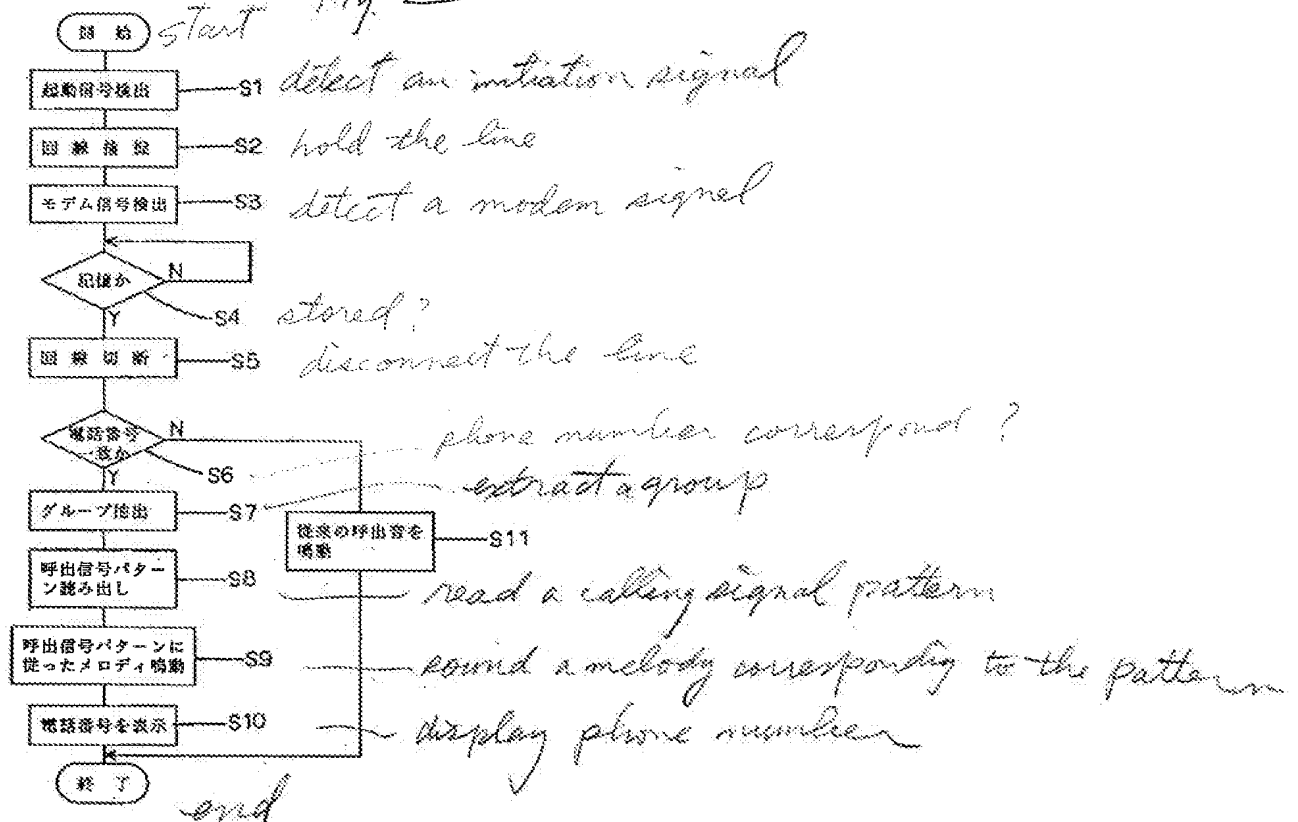 開始 start
起動信号検出 S1 detect an initiation signal
回線接続 S2 hold the line
モデム信号検出 S3 detect a modem signal
記憶か N
Y S4 stored?
回線切断 S5 disconnect the line
電話番号 N phone number correspond?
一致か
Y S6
グループ抽出 S7 extract a group
従来の呼出音を S11
鳴動
呼出信号パター S8 read a calling signal pattern
ン読み出し
呼出信号パターンに S9 sound a melody correspondig to the pattern
従ったメロディ鳴動
電話番号を表示 S10 display phone number
終了 end